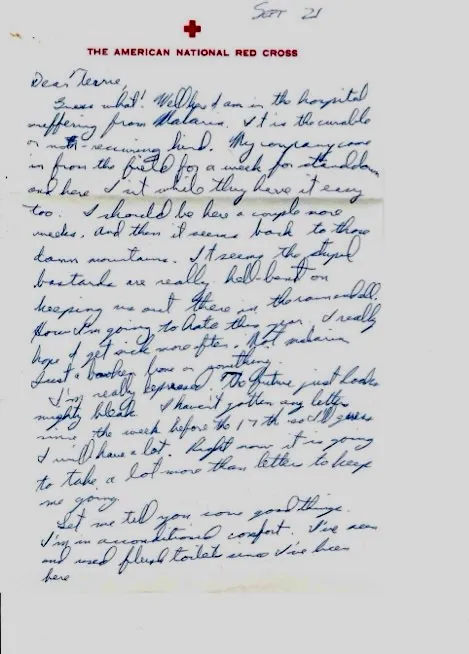 Sept 21
THE AMERICAN NATIONAL RED CROSS
Dear Terrie,
Guess what! Well here I am in the hospital
suffering from Malaria. It is the curable
or not-recurring kind. My company came
in from the field for a week for standdown
and here I sit while they have it easy
too. I should be here a couple more
weeks, and then it seems back to those
damn mountains. It seems the stupid
bastards are really hell-bent on
keeping us out there in the rain and all.
How I'm going to hate this year. I really
hope I get sick more often. Not malaria
Just a broken bone or something.
I'm really depressed. The future just looks
mighty bleak. I haven't gotten any letters
since the week before the 17th so I'll guess
I will have a lot. Right now it is going
to take a lot more than letters to keep
me going.
Let me tell you some good things.
I'm in airconditioned comfort. I've seen
and used flush toilets since I've been
here